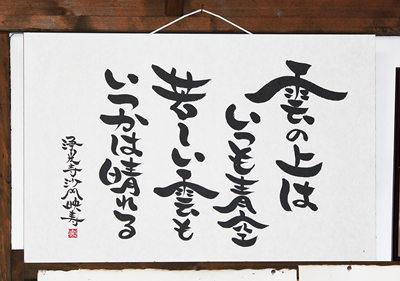 雲の上は
いつも青空
苦しい雲も
いつかは晴れる
浄光寺沙門映寿